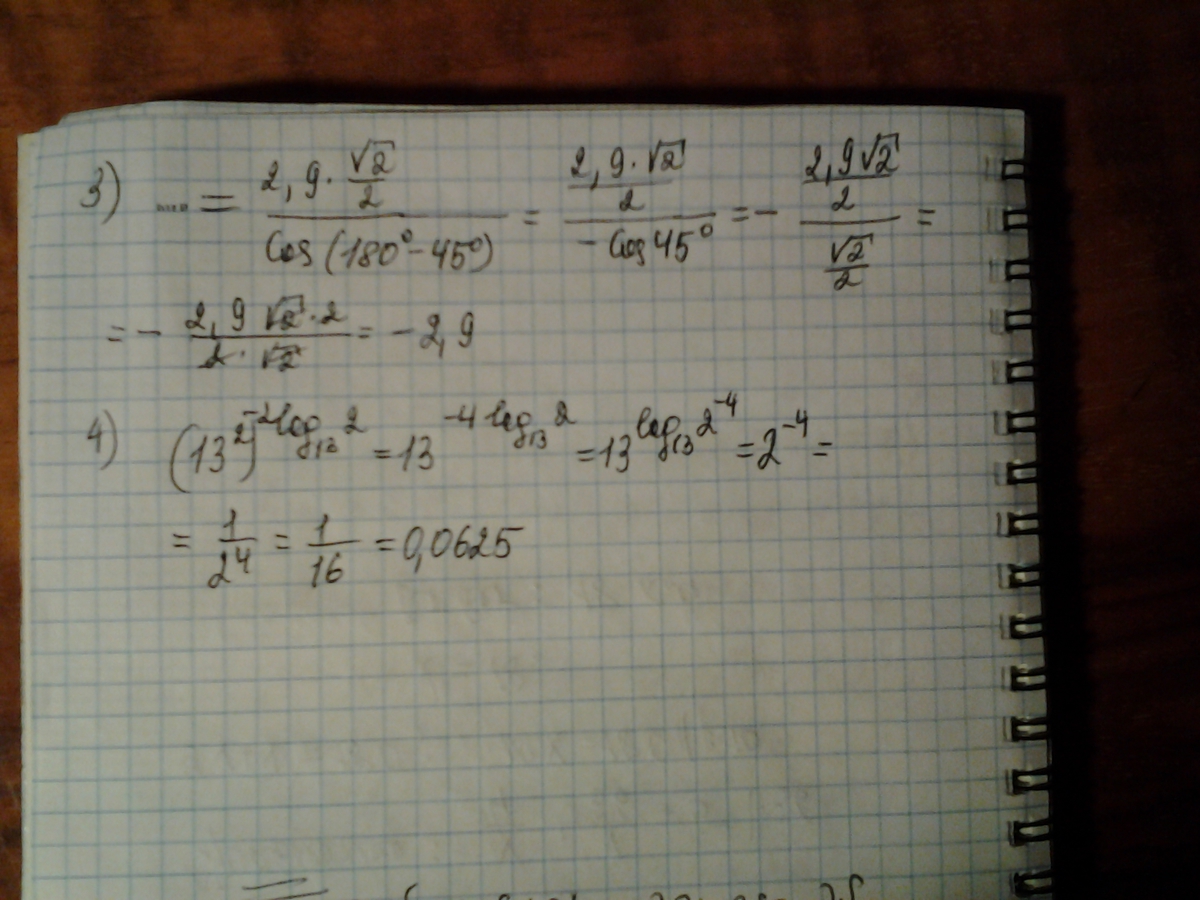 3) ....= (2,9·√2/2)/(cos(180°-45°)) = (2,9·√2/2)/(-cos45°) = -(2,9√2/2)/(√2/2) =
= - (2,9√2·2)/(2·√2) = -2,9
4) (13²)^(-2log₁₃2) = 13^(-4log₁₃2) = 13^(log₁₃2⁻⁴) = 2⁻⁴ =
= 1/2⁴ = 1/16 = 0,0625